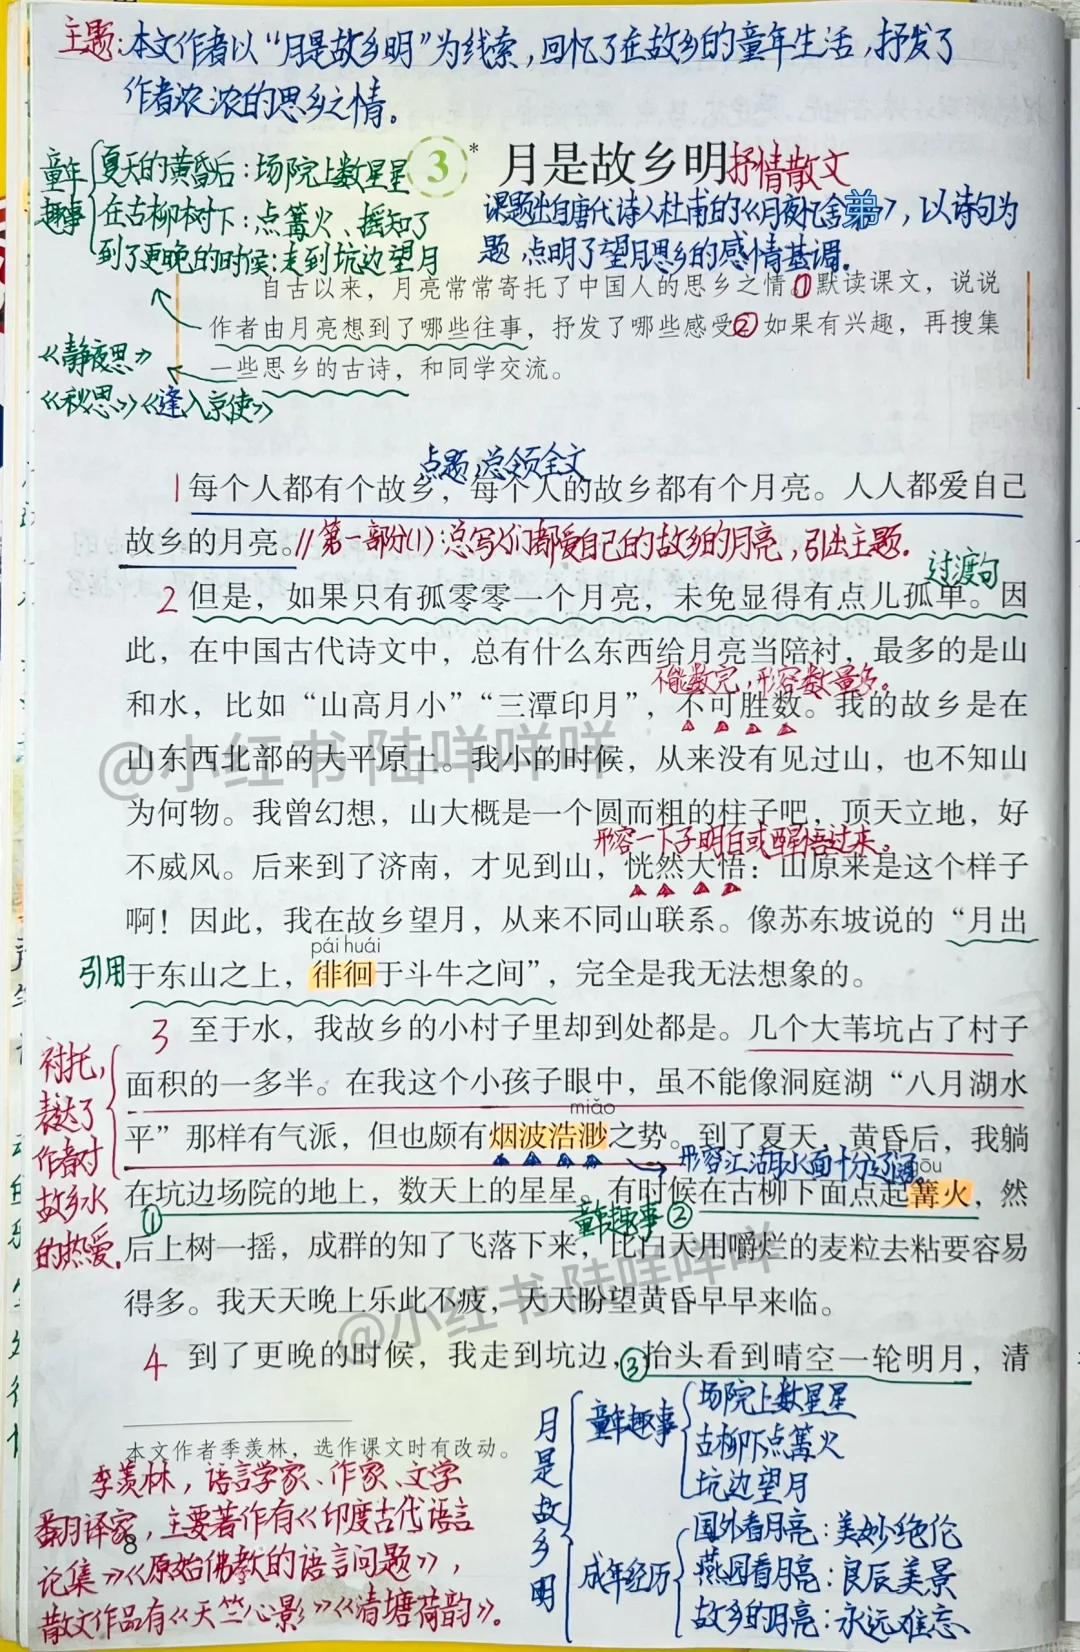 主题:本文作者以“月是故乡明”为线索,回忆了在故乡的童年生活,抒发了
作者浓浓的思乡之情。
童年趣事
夏天的黄昏后:场院上数星星
在古柳树下:点篝火、摇知了
到了更晚的时候:走到坑边望月
3* 月是故乡明
抒情散文
课题出自唐代诗人杜甫的《月夜忆舍弟》,以诗句为
题,点明了望月思乡的感情基调。
自古以来，月亮常常寄托了中国人的思乡之情。①默读课文，说说
作者由月亮想到了哪些往事，抒发了哪些感受②如果有兴趣，再搜集
一些思乡的古诗，和同学交流。
《静夜思》
《秋思》《逢入京使》
点题,总领全文
1 每个人都有个故乡，每个人的故乡都有个月亮。人人都爱自己
故乡的月亮。//第一部分(1):总写人们都爱自己的故乡的月亮,引出主题.
过渡句
2 但是，如果只有孤零零一个月亮，未免显得有点儿孤单。因
此，在中国古代诗文中，总有什么东西给月亮当陪衬，最多的是山
不能数完,形容数量多。
和水，比如“山高月小”“三潭印月”，不可胜数。我的故乡是在
山东西北部的大平原上。我小的时候，从来没有见过山，也不知山
为何物。我曾幻想，山大概是一个圆而粗的柱子吧，顶天立地，好
形容一下子明白或醒悟过来。
不威风。后来到了济南，才见到山，恍然大悟：山原来是这个样子
啊！因此，我在故乡望月，从来不同山联系。像苏东坡说的“月出
pái huái
引用
于东山之上，徘徊于斗牛之间”，完全是我无法想象的。
3 至于水，我故乡的小村子里却到处都是。几个大苇坑占了村子
面积的一多半。在我这个小孩子眼中，虽不能像洞庭湖“八月湖水
miǎo
平”那样有气派，但也颇有烟波浩渺之势。到了夏天，黄昏后，我躺
形容江湖水面十分辽阔。
gōu
在坑边场院的地上，数天上的星星。有时候在古柳下面点起篝火，然
① 童年趣事 ②
后上树一摇，成群的知了飞落下来，比白天用嚼烂的麦粒去粘要容易
得多。我天天晚上乐此不疲，天天盼望黄昏早早来临。
衬托,
表达了
作者对
故乡水
的热爱.
4 到了更晚的时候，我走到坑边，③抬头看到晴空一轮明月，清
本文作者季羡林，选作课文时有改动。
季羡林,语言学家、作家、文学
翻译家,主要著作有《印度古代语言
论集》《原始佛教的语言问题》,
散文作品有《天竺心影》《清塘荷韵》。
8
月是故乡明
童年趣事
场院上数星星
古柳下点篝火
坑边望月
成年经历
国外看月亮:美妙绝伦
燕园看月亮:良辰美景
故乡的月亮:永远难忘
@小红书 陆咩咩咩
@小红书 陆咩咩咩